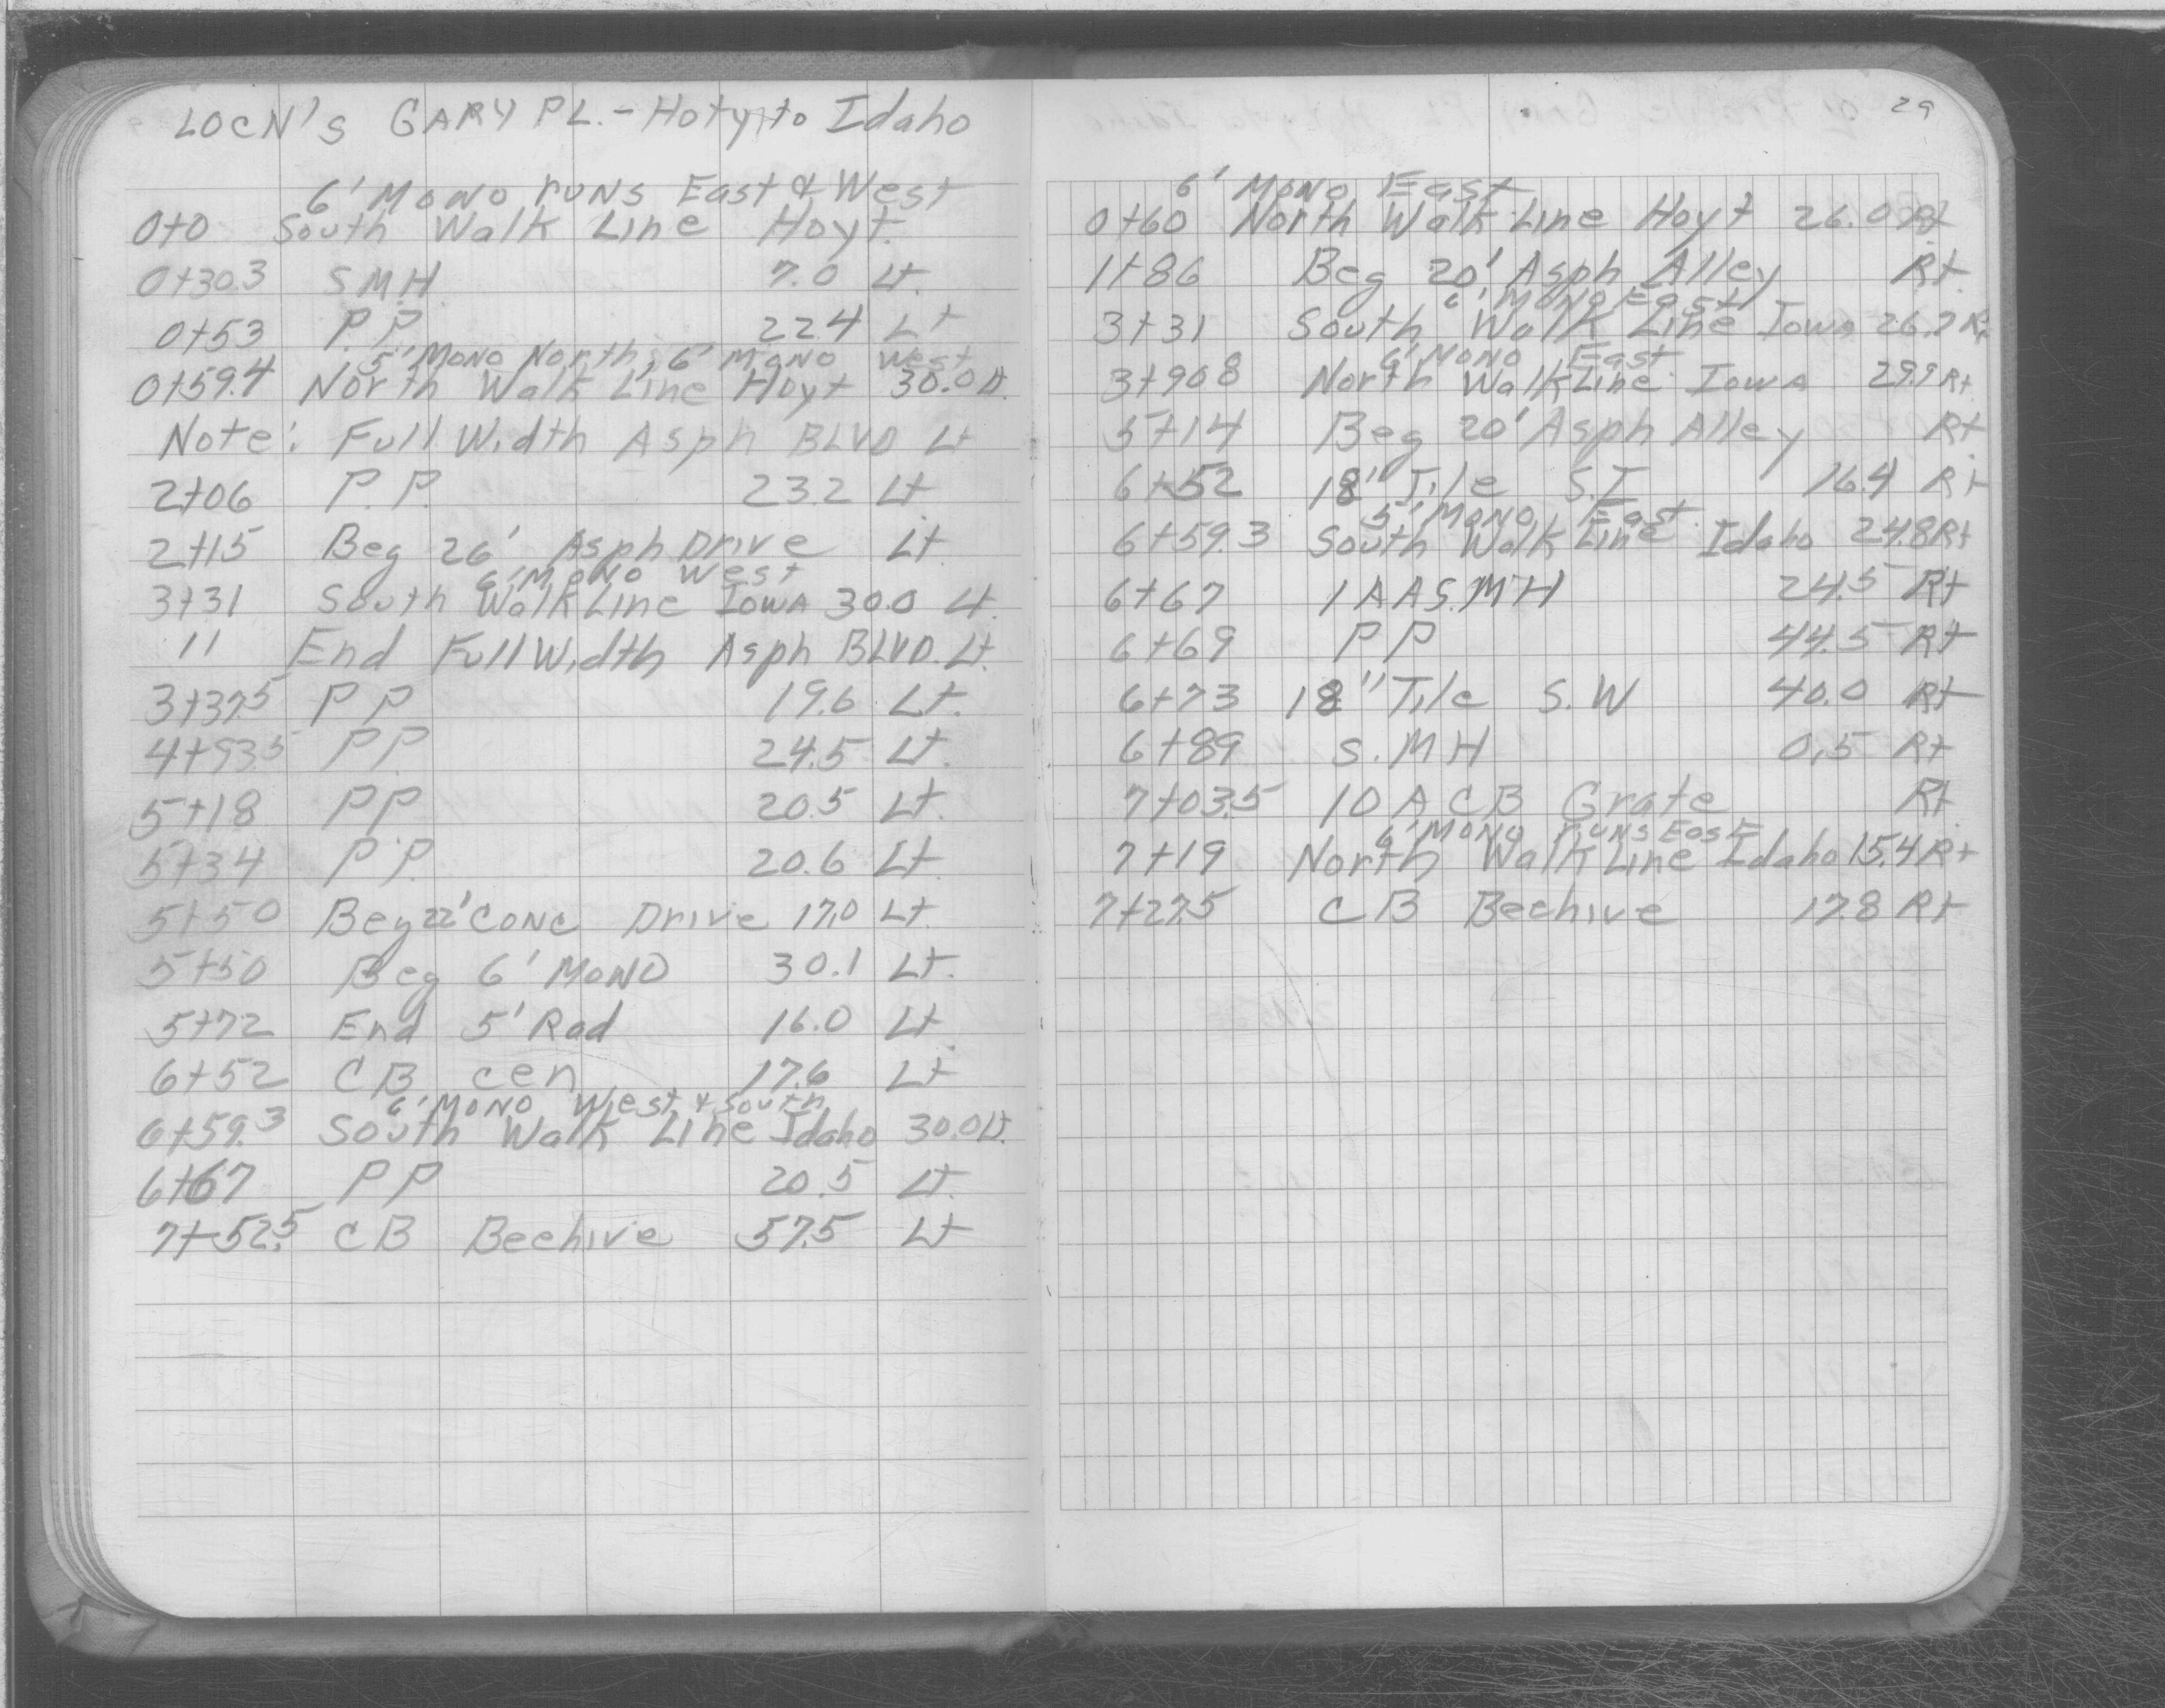 LOCN's GARY PL. - Hotyt to Idaho
6' MONO runs East & West
0+0 South Walk Line Hoyt.
0+30.3 S.M.H. 7.0 Lt.
0+53 P.P. 22.4 Lt
5' MONO North, 6' MONO West
0+59.4 North Walk Line Hoyt 30.0 Lt.
Note: Full Width Asph BLVD Lt
2+06 P.P. 23.2 Lt.
2+15 Beg 26' Asph Drive Lt.
6' MONO West
3+31 South Walk Line Iowa 30.0 Lt.
11 End Full Width Asph BLVD. Lt.
3+37.5 PP 19.6 Lt.
4+93.5 P.P. 24.5 Lt.
5+18 PP 20.5 Lt.
5+34 P.P. 20.6 Lt.
5+50 Beg 22' CONC Drive 17.0 Lt.
5+50 Beg 6' MONO 30.1 Lt.
5+72 End 5' Rad 16.0 Lt.
6+52 CB cen 17.6 Lt
6' MONO West & South
6+59.3 South Walk Line Idaho 30.0 Lt.
6+67 PP 20.5 Lt.
7+52.5 CB Beehive 57.5 Lt
29
6' MONO East
0+60 North Walk Line Hoyt 26.0 Rt
1+86 Beg 20' Asph Alley Rt.
6' MONO East
3+31 South Walk Line Iowa 26.7 Rt
6' MONO East
3+90.8 North Walk Line Iowa 29.9 Rt.
5+14 Beg 20' Asph Alley Rt
6+52 18" Tile S.I 16.4 Rt
5' MONO East.
6+59.3 South Walk Line Idaho 24.8 Rt
6+67 1AA S.MH 24.5 Rt
6+69 PP 44.5 Rt
6+73 18" Tile S.W 40.0 Rt
6+89 S.MH 0.5 Rt
7+03.5 10 A CB Grate Rt.
6' MONO runs East
7+19 North Walk Line Idaho 15.4 Rt
7+27.5 CB Beehive 17.8 Rt